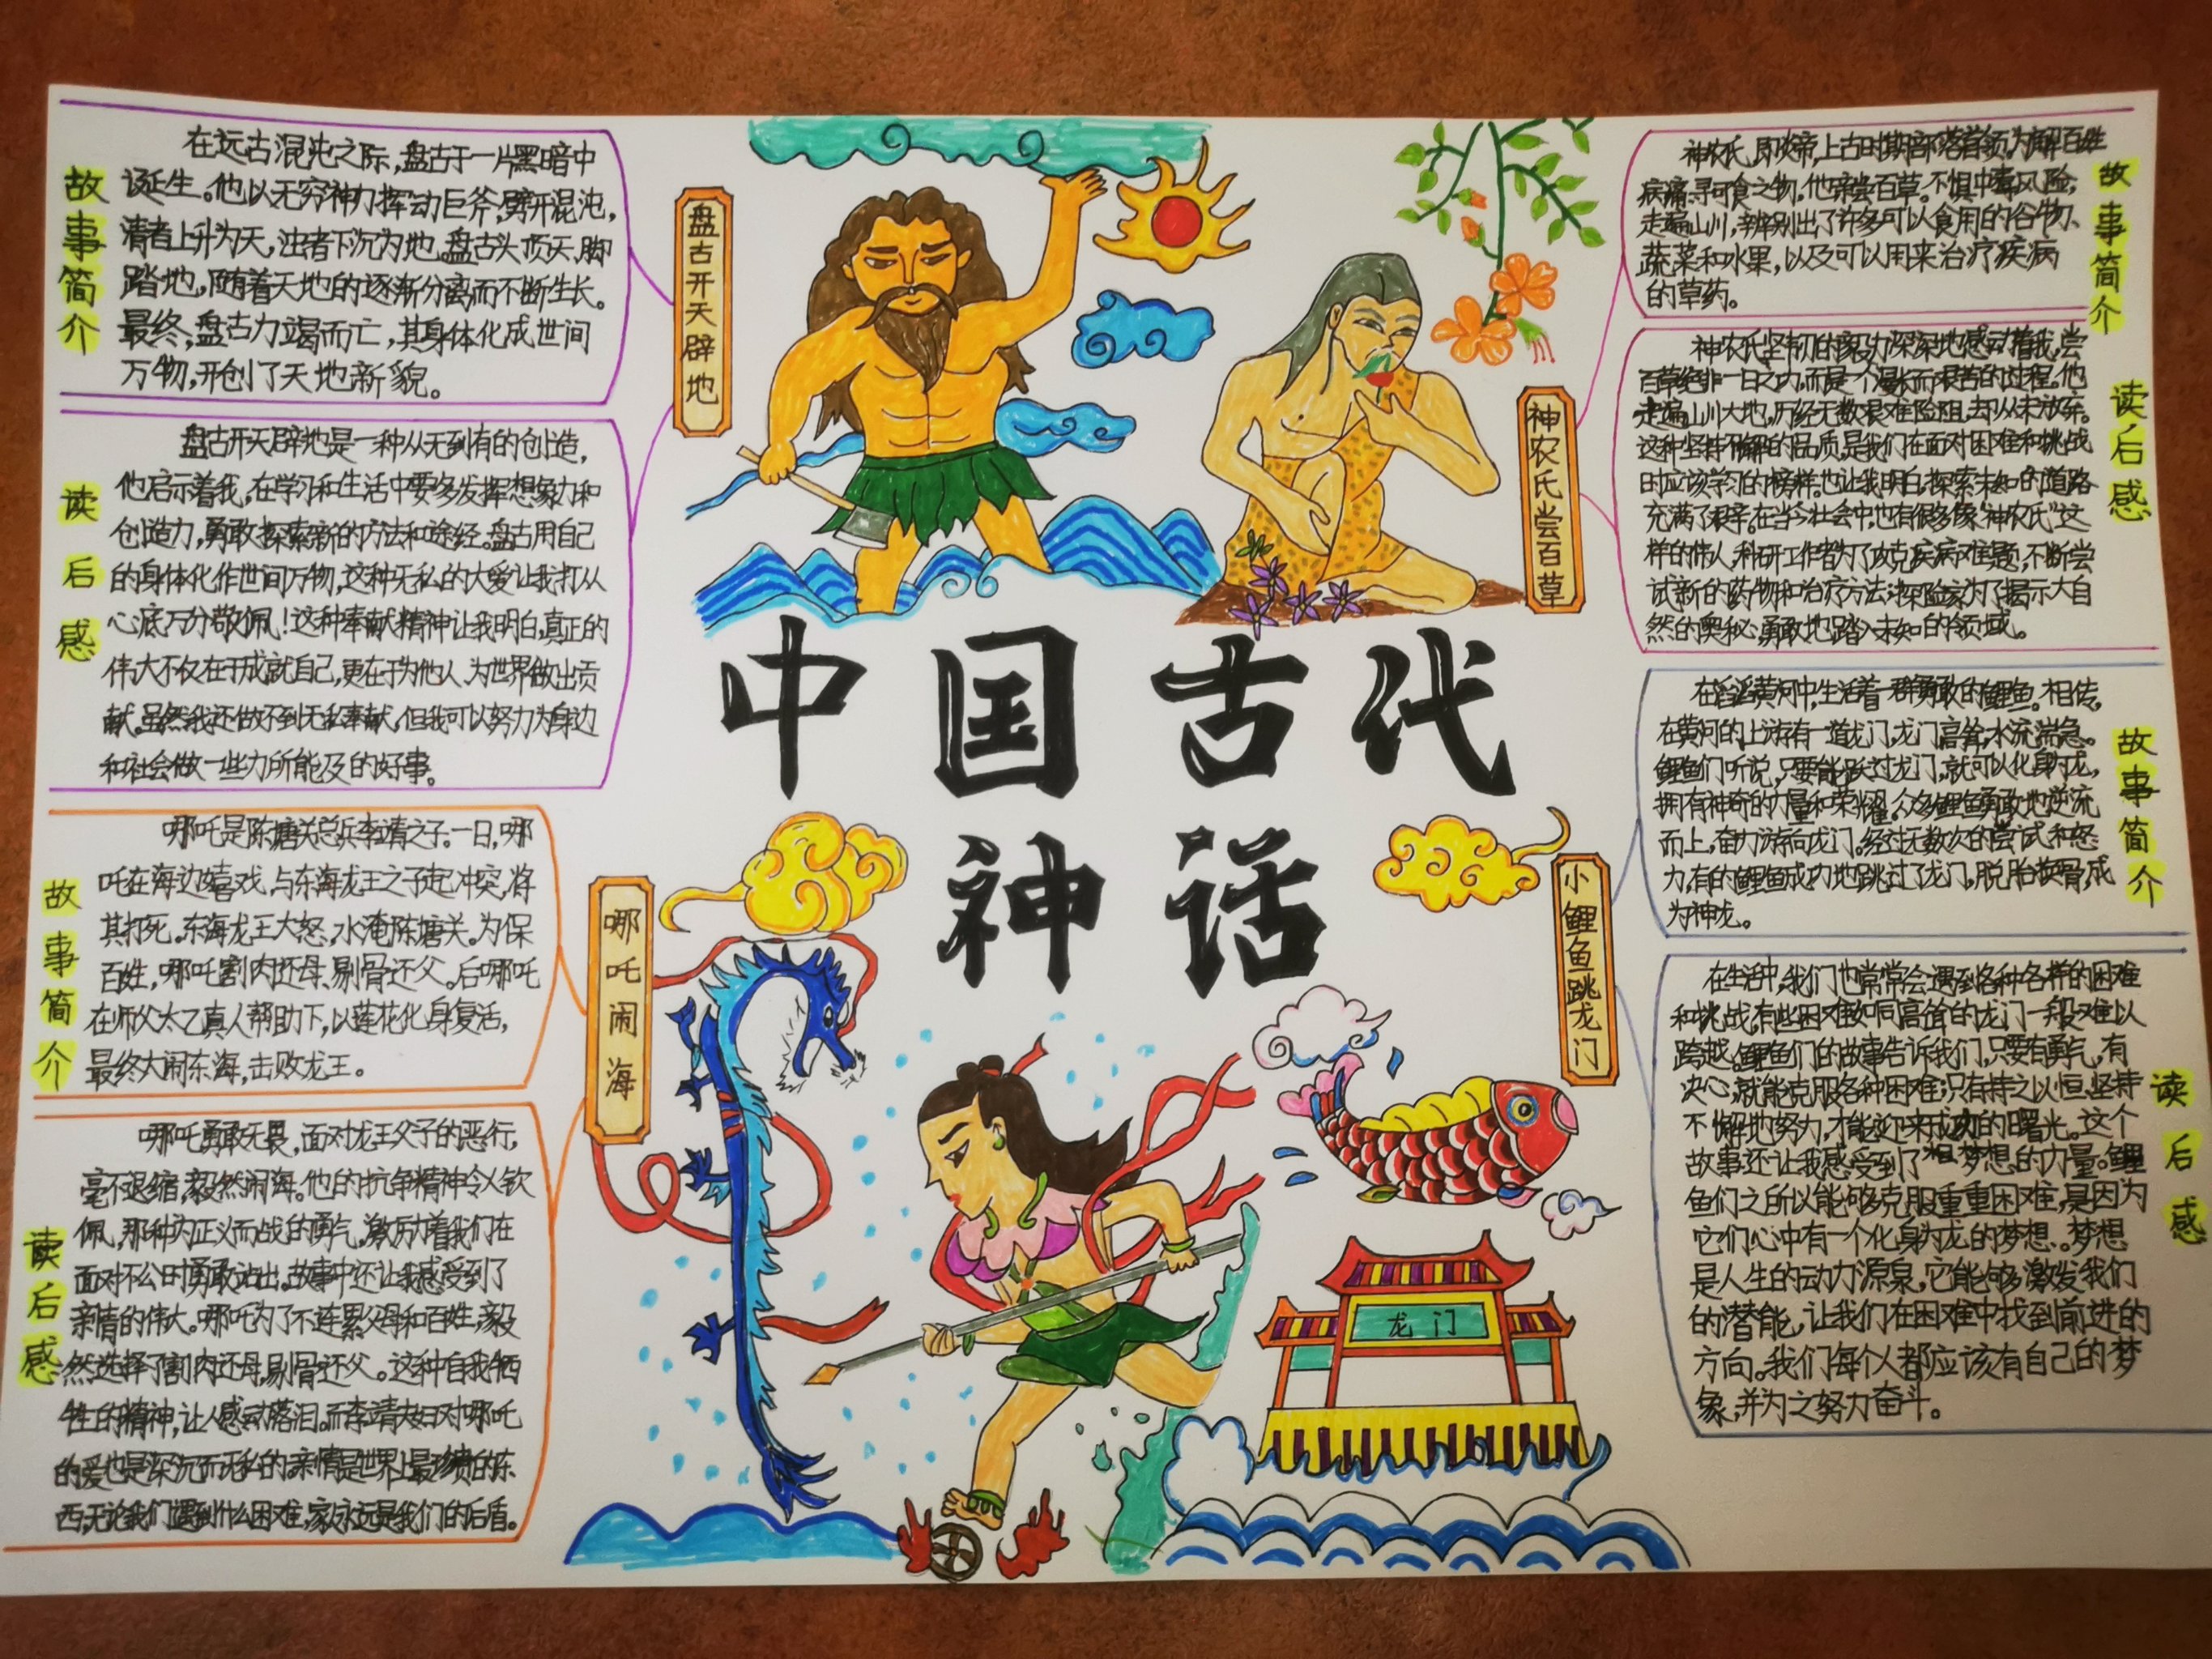 中国古代
神话
盘古开天辟地
故事简介
在远古混沌之际,盘古于一片黑暗中
诞生。他以无穷神力挥动巨斧,劈开混沌,
清者上升为天,浊者下沉为地。盘古头顶天,脚
踏地,随着天地的逐渐分离而不断生长。
最终,盘古力竭而亡,其身体化成世间
万物,开创了天地新貌。
读后感
盘古开天辟地是一种从无到有的创造,
他启示着我,在学习和生活中要多发挥想象力和
创造力,勇敢探索新的方法和途经。盘古用自己
的身体化作世间万物,这种无私的大爱让我打从
心底万分敬佩!这种奉献精神让我明白,真正的
伟大不仅在于成就自己,更在于为他人、为世界做出贡
献。虽然我还做不到无私奉献,但我可以努力为身边
和社会做一些力所能及的好事。
哪吒闹海
故事简介
哪吒是陈塘关总兵李靖之子。一日,哪
吒在海边嬉戏,与东海龙王之子起冲突,将
其打死。东海龙王大怒,水淹陈塘关。为保
百姓,哪吒割肉还母,剔骨还父。后哪吒
在师父太乙真人帮助下,以莲花化身复活,
最终大闹东海,击败龙王。
读后感
哪吒勇敢无畏,面对龙王父子的恶行,
毫不退缩,毅然闹海。他的抗争精神令人钦
佩,那种为正义而战的勇气,激励着我们在
面对不公时勇敢站出。故事中还让我感受到了
亲情的伟大。哪吒为了不连累父母和百姓,毅
然选择了割肉还母,剔骨还父。这种自我牺
牲的精神,让人感动落泪。而李靖夫妇对哪吒
的爱也是深沉而无私的。亲情是世界上最珍贵的东
西,无论我们遇到什么困难,家永远是我们的后盾。
神农氏尝百草
故事简介
神农氏,即炎帝,上古时期部落首领。为解百姓
病痛、寻可食之物,他常尝百草。不惧中毒风险,
走遍山川,辨别出了许多可以食用的谷物、
蔬菜和水果,以及可以用来治疗疾病
的草药。
读后感
神农氏坚韧的毅力深深地感动着我,尝
百草绝非一日之功,而是一个漫长而艰苦的过程。他
走遍山川大地,历经无数艰难险阻,却从未放弃。
这种坚持不懈的品质,是我们在面对困难和挑战
时应该学习的榜样。也让我明白,探索未知的道路
充满了艰辛。在当今社会中,也有很多像“神农氏”这
样的伟人,科研工作者为了攻克疾病难题,不断尝
试新的药物和治疗方法;探险家为了揭示大自
然的奥秘,勇敢地踏入未知的领域。
小鲤鱼跳龙门
故事简介
在滔滔黄河中,生活着一群勇敢的鲤鱼。相传,
在黄河的上游有一道龙门,龙门高耸,水流湍急。
鲤鱼们听说,只要能跃过龙门,就可以化身为龙,
拥有神奇的力量和荣耀。众多鲤鱼勇敢地逆流
而上,奋力游向龙门。经过无数次的尝试和怒
力,有的鲤鱼成功地跳过了龙门,脱胎换骨,成
为神龙。
读后感
在生活中,我们也常常会遇到各种各样的困难
和挑战,有些困难如同高耸的龙门一般,难以
跨越。鲤鱼们的故事告诉我们,只要有勇气,有
决心,就能克服各种困难;只有持之以恒,坚持
不懈地努力,才能迎来成功的曙光。这个
故事还让我感受到了梦想的力量。鲤
鱼们之所以能够克服重重困难,是因为
它们心中有一个化身为龙的梦想。梦想
是人生的动力源泉,它能够激发我们
的潜能,让我们在困难中找到前进的
方向。我们每个人都应该有自己的梦
象,并为之努力奋斗。
龙门